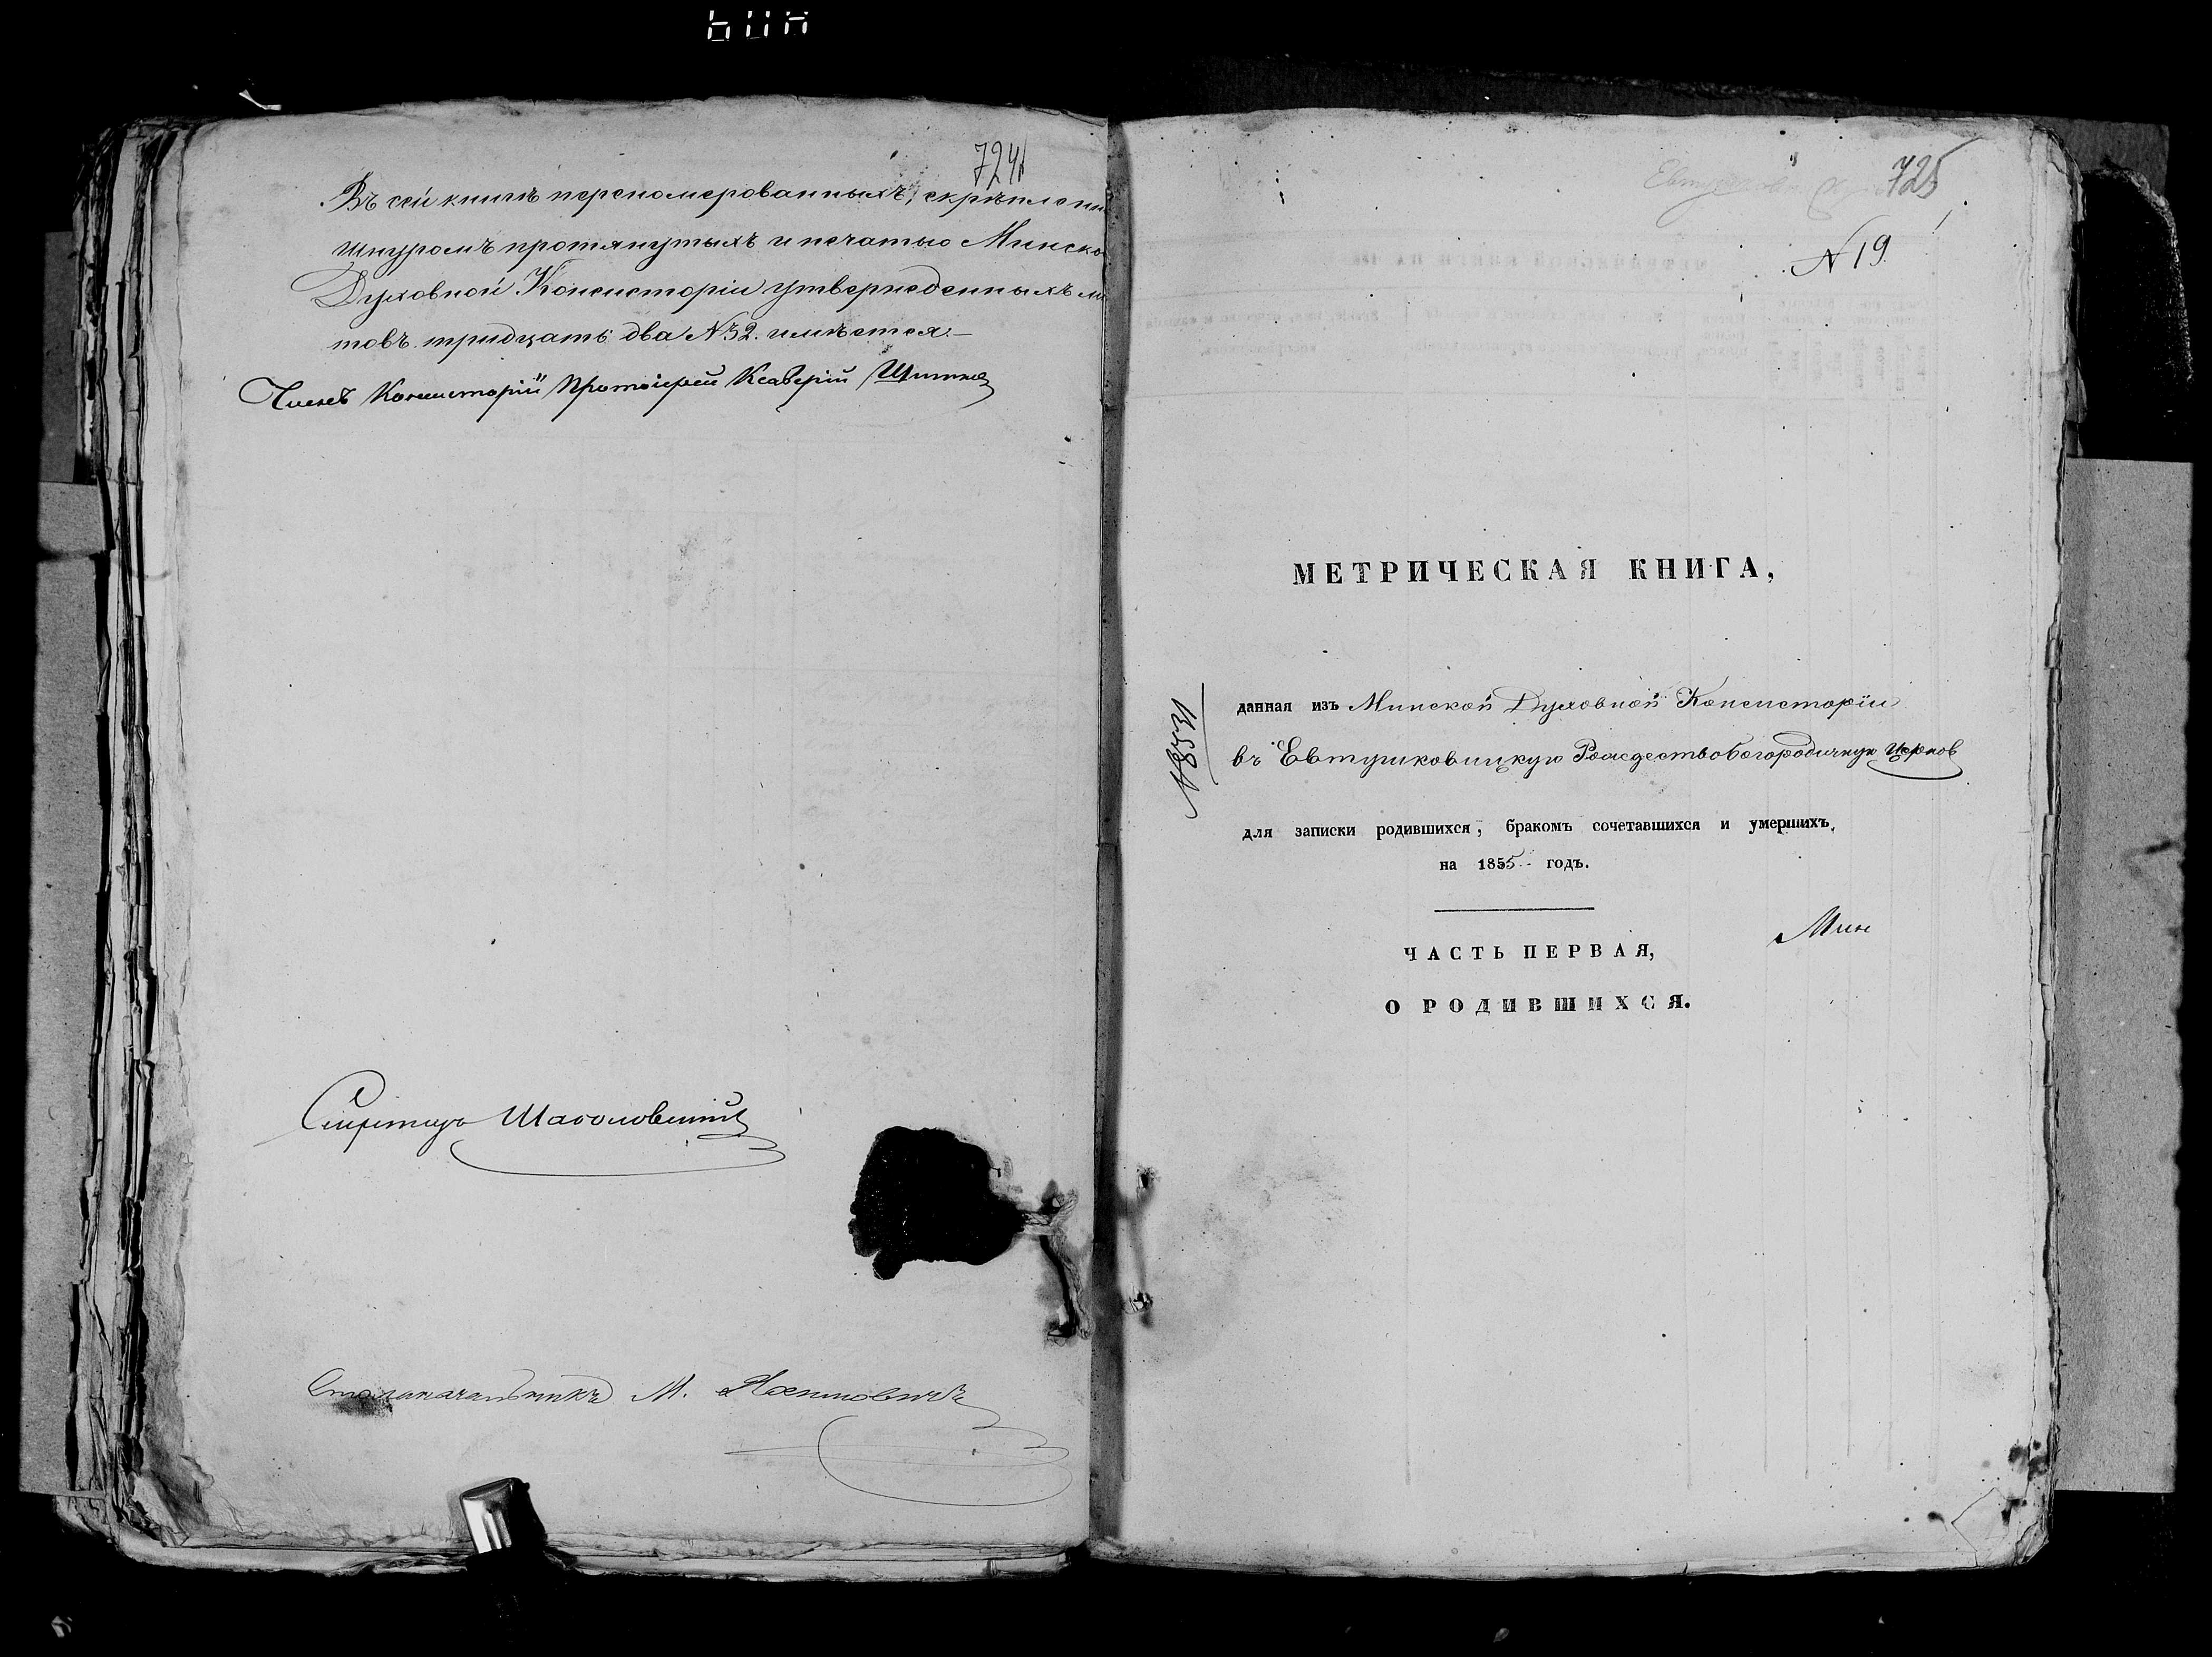 724
Въ сей книгѣ перепомерованныхъ, скрѣплен
шнуромъ протянутыхъ и печатью Минско
Духовной Консисторіи утвержденныхъ ли
товъ тридцать два №32. имѣется.—
Членъ Консисторіи Протоіерей Ксаверій
Секретарь
Столоначальникъ М.
725
№ 19.
МЕТРИЧЕСКАЯ КНИГА,
данная изъ Минской Духовной Консисторіи
въ Евтушковицкую Рождествобогородичную Церков
№ 8531
для записки родившихся, бракомъ сочетавшихся и умершихъ,
на 1855 годъ.
ЧАСТЬ ПЕРВАЯ,
Мин
О РОДИВШИХСЯ.